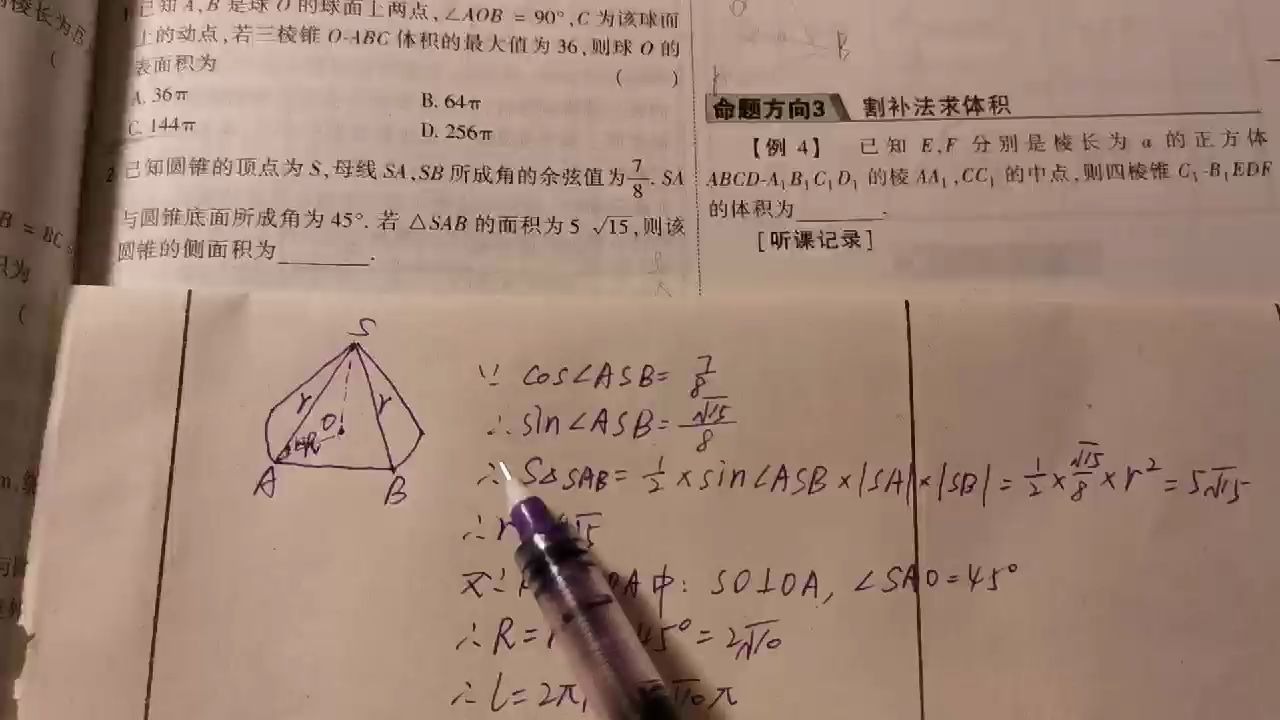 已知 A,B 是球 O 的球面上两点,∠AOB = 90°,C 为该球面
上的动点,若三棱锥 O-ABC 体积的最大值为 36,则球 O 的
表面积为 ( )
A. 36π B. 64π
C. 144π D. 256π
2 已知圆锥的顶点为 S,母线 SA,SB 所成角的余弦值为 7/8. SA
与圆锥底面所成角为 45°. 若 △SAB 的面积为 5 √15,则该
圆锥的侧面积为________.
B
命题方向3 割补法求体积
【例 4】 已知 E,F 分别是棱长为 a 的正方体
ABCD-A₁B₁C₁D₁ 的棱 AA₁,CC₁ 的中点,则四棱锥 C₁-B₁EDF
的体积为________.
[听课记录]
棱长为
B = BC
积为
(
S
r r
O
R
A B
∵ cos∠ASB= 7/8
∴ sin∠ASB= √15/8
∴ S△SAB= 1/2 ×sin∠ASB×|SA|×|SB|= 1/2 × √15/8 ×r²=5√15
∴
又∵ A中: SO⊥OA, ∠SAO=45°
∴ R= 45°=2√10
∴ l=2π π